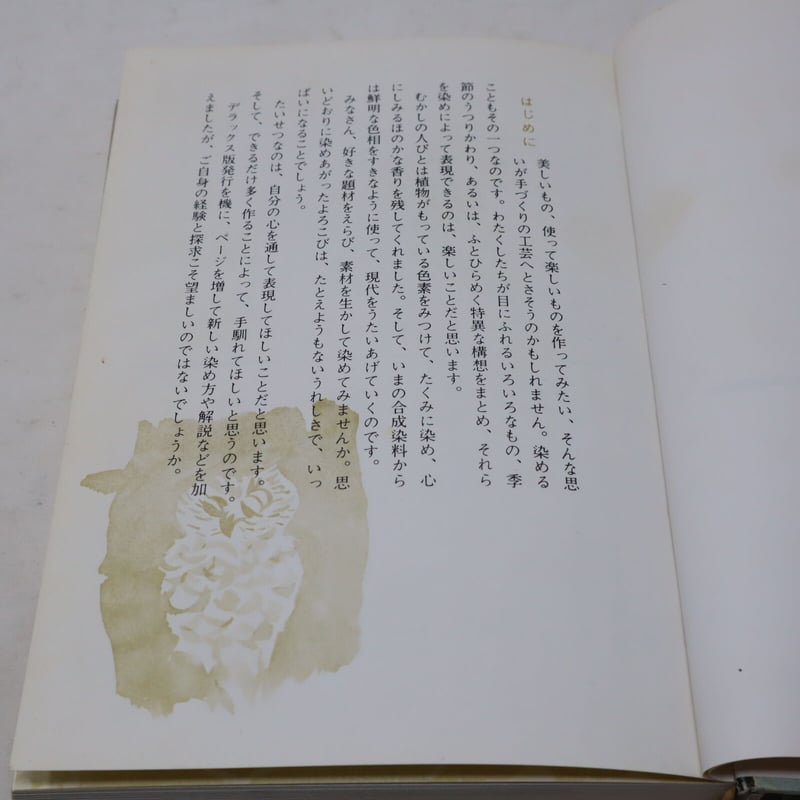 はじめに
美しいもの、使って楽しいものを作ってみたい、そんな思
いが手づくりの工芸へとさそうのかもしれません。染める
こともその一つなのです。わたくしたちが目にふれるいろいろなもの、季
節のうつりかわり、あるいは、ふとひらめく特異な構想をまとめ、それら
を染めによって表現できるのは、楽しいことだと思います。
むかしの人びとは植物がもっている色素をみつけて、たくみに染め、心
にしみるほのかな香りを残してくれました。そして、いまの合成染料から
は鮮明な色相をすきなように使って、現代をうたいあげていくのです。
みなさん、好きな題材をえらび、素材を生かして染めてみませんか。思
いどおりに染めあがったよろこびは、たとえようもないうれしさで、いっ
ぱいになることでしょう。
たいせつなのは、自分の心を通して表現してほしいことだと思います。
そして、できるだけ多く作ることによって、手馴れてほしいと思うのです。
デラックス版発行を機に、ページを増して新しい染め方や解説などを加
えましたが、ご自身の経験と探求こそ望ましいのではないでしょうか。